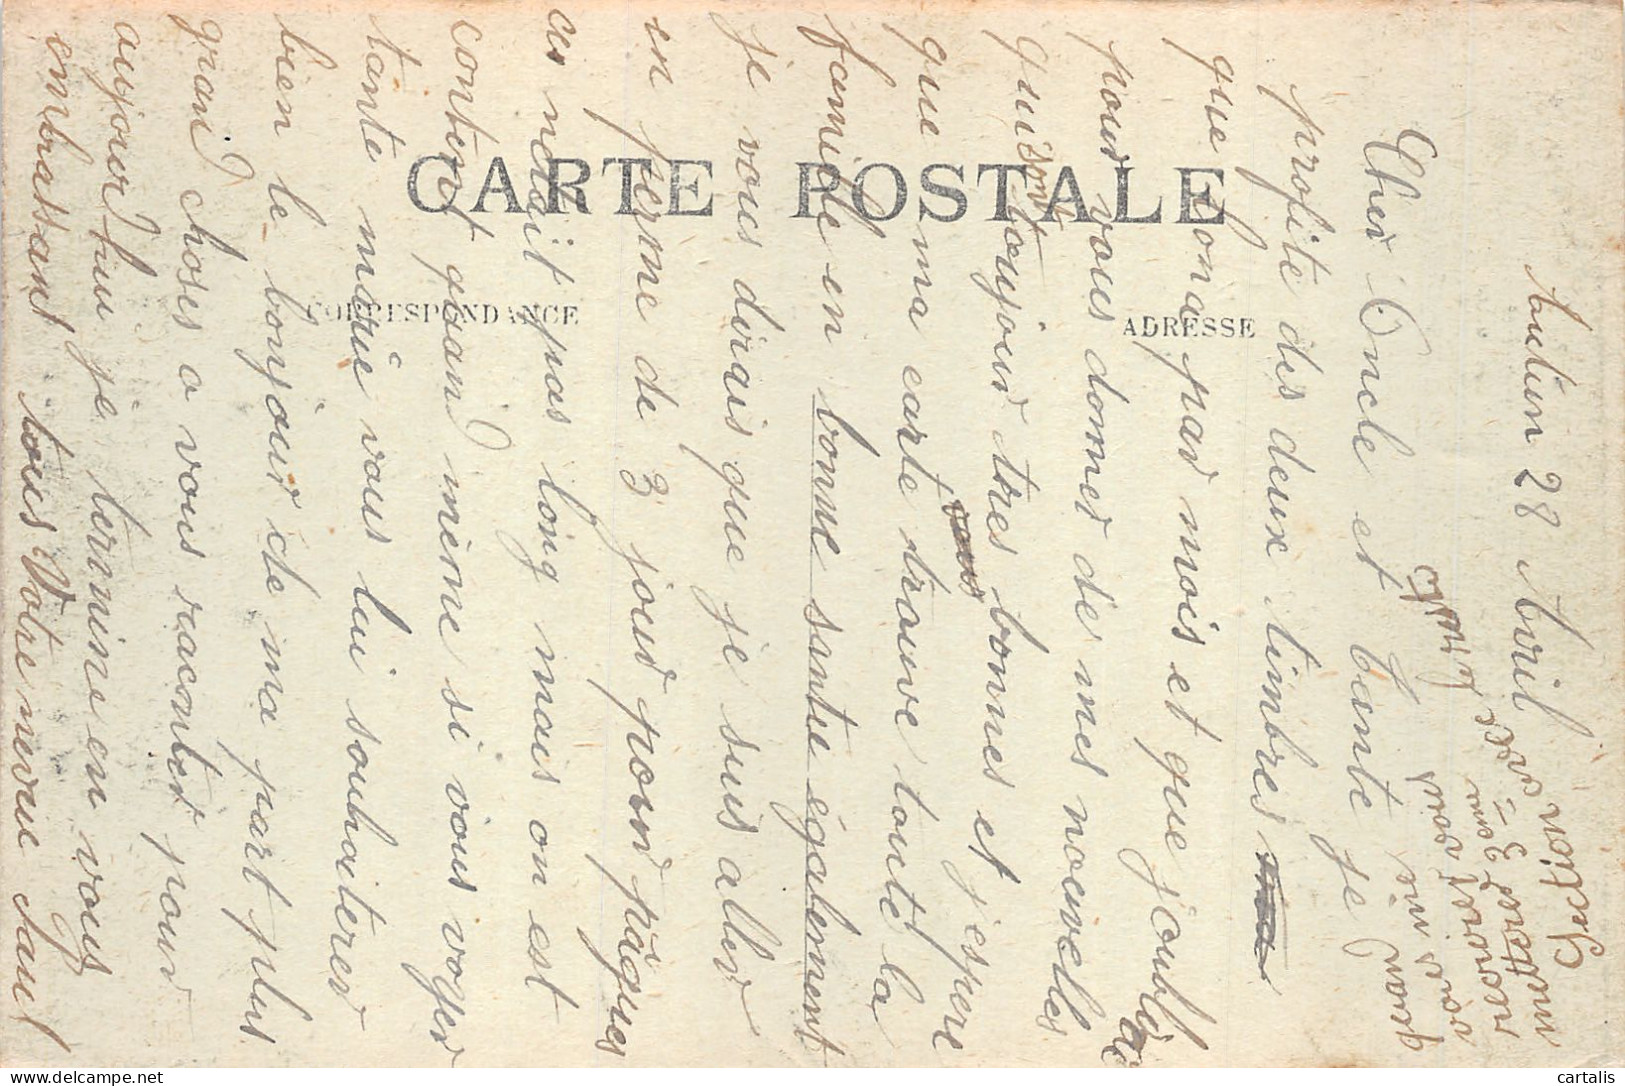 CARTE POSTALE
CORRESPONDANCE
ADRESSE
Autun 28 Avril
Cher Oncle et Tante je
profite des deux timbres
que l'on a par mois et que j'oubliai
pour vous donner de mes nouvelles
qui sont toujour tres bonnes et j'espere
que ma carte trouve toute la
famille en bonne sante également
je vous dirais que je suis aller
en perme de 3 jour pour pâques
ces nétait pas long mais on est
content quand même si vous voyer
tante marie vous lui souhaiterer
bien le bonjour de ma part plus
grand choses a vous raconter pour
aujourd'hui je termine en vous
embrassant tous Votre neveu
quand
vous
vous
mettere 3eme
Section avec
cartalis